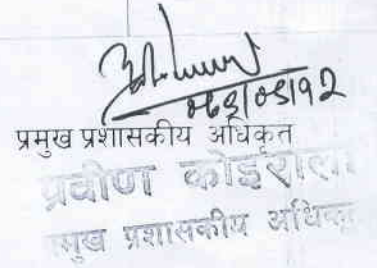 प्रमुख प्रशासकीय अधिकृत
प्रवीण कोइराला
प्रमुख प्रशासकीय अधिकृत